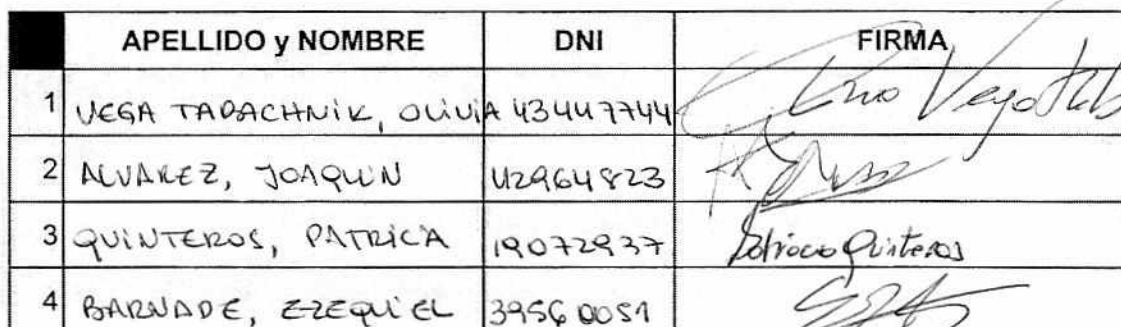 APELLIDO y NOMBRE DNI FIRMA
1 VEGA TABACHNIK, OLIVIA 43447744
2 ALVAREZ, JOAQUIN 42964823
3 QUINTEROS, PATRICIA 19072937 Patricia Quinteros
4 BARNADE, EZEQUIEL 39560051